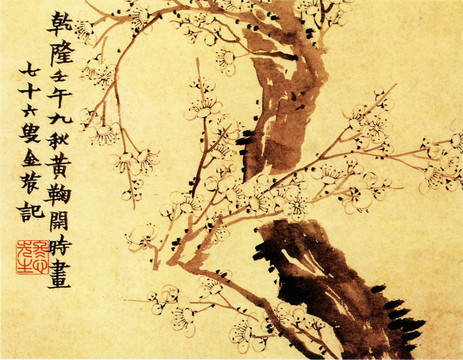 乾隆壬午九秋黃鞠開時畫
七十六叟金農記